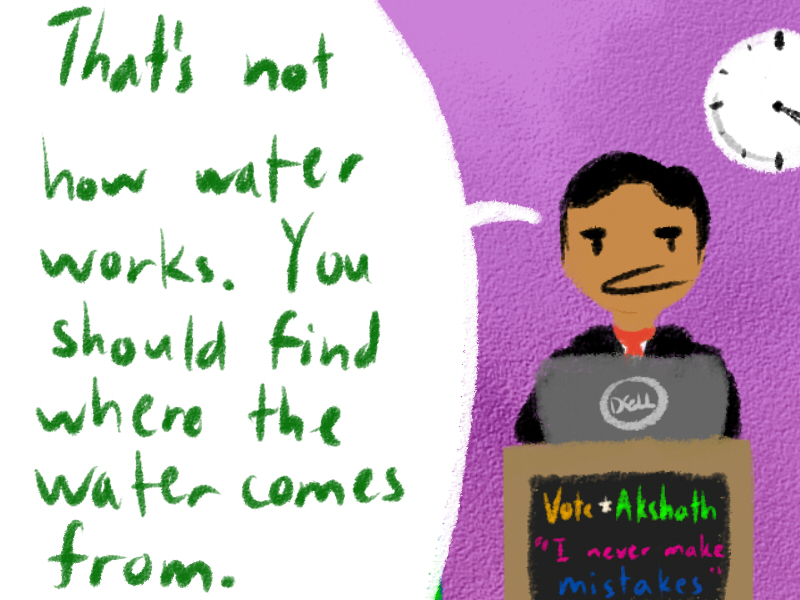 That's not
how water
works. You
should find
where the
water comes
from.
DELL
Vote * Akshath
"I never make
mistakes"